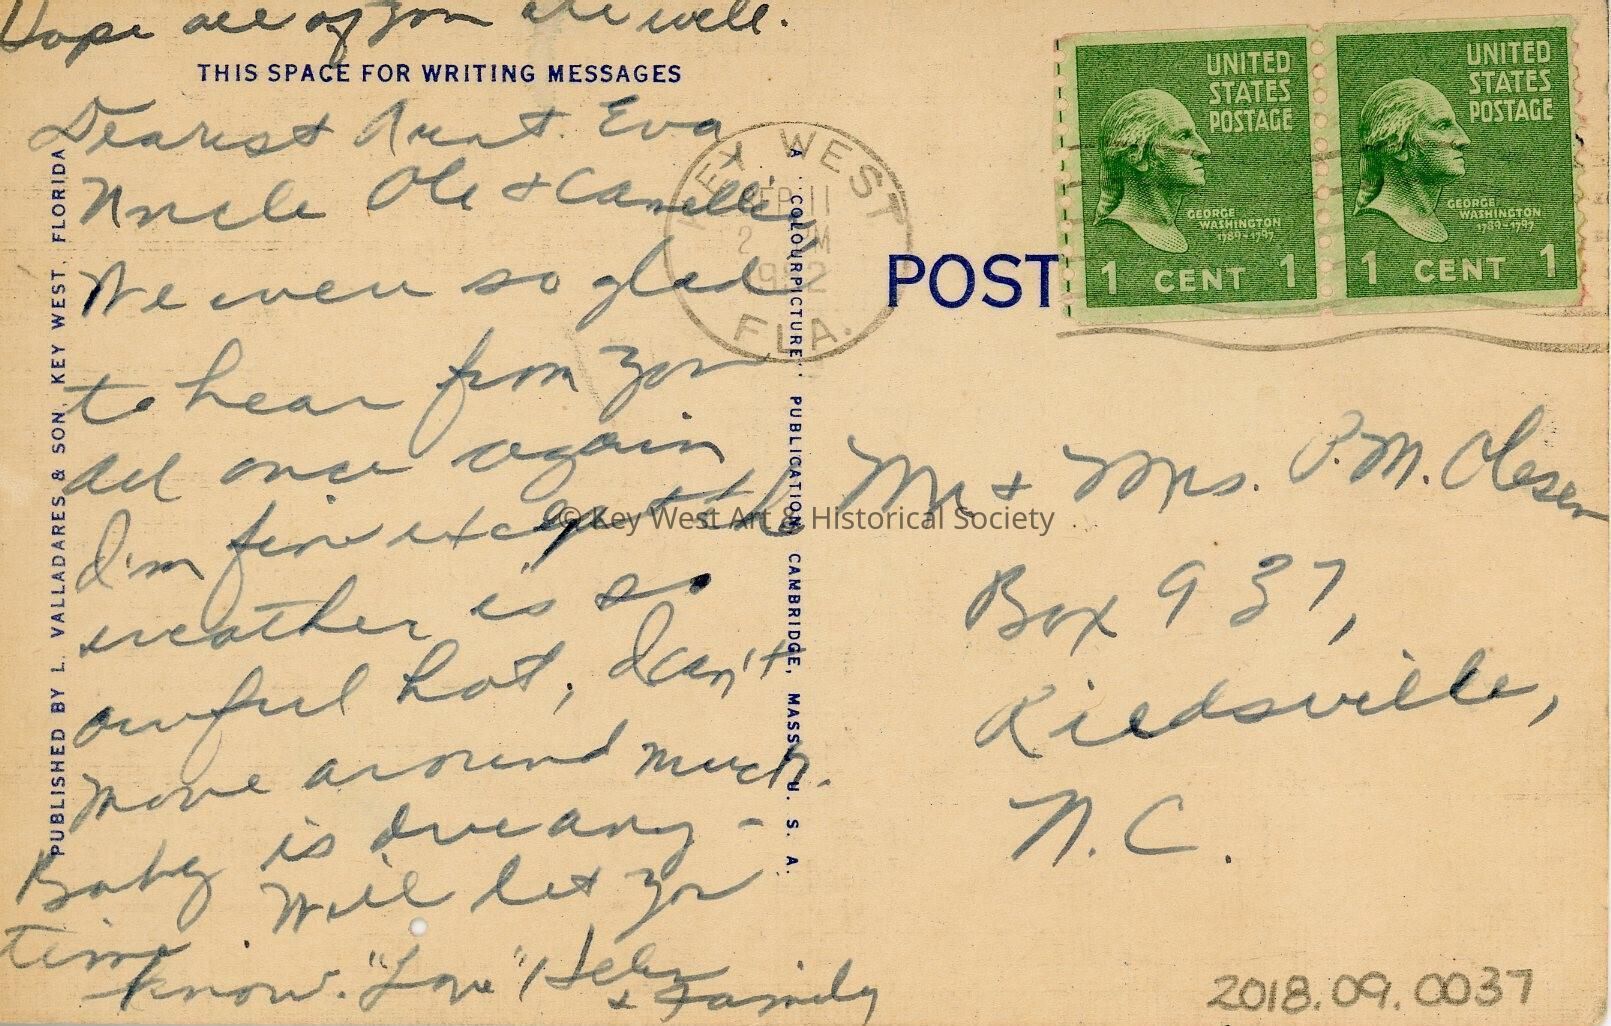 Hope all of you are well.
THIS SPACE FOR WRITING MESSAGES
Dearest Aunt Eva
Uncle Ole & Camille,
We were so glad
to hear from you
all once again
I'm fine except the
weather is so
awful hot, I can't
move around much.
Baby is due any -
time. Will let you
know. "Love" Helen
& Family
PUBLISHED BY L. VALLADARES & SON, KEY WEST, FLORIDA
A. COLOURPICTURE PUBLICATION CAMBRIDGE, MASS. U. S. A.
KEY WEST
SEP 11
2 PM
1952
FLA.
POST
UNITED
STATES
POSTAGE
GEORGE
WASHINGTON
1789-1797
1 CENT 1
UNITED
STATES
POSTAGE
GEORGE
WASHINGTON
1789-1797
1 CENT 1
Mr & Mrs. P.M. Olesen
Box 937,
Riedsville,
N.C.
© Key West Art & Historical Society
2018.09.0037